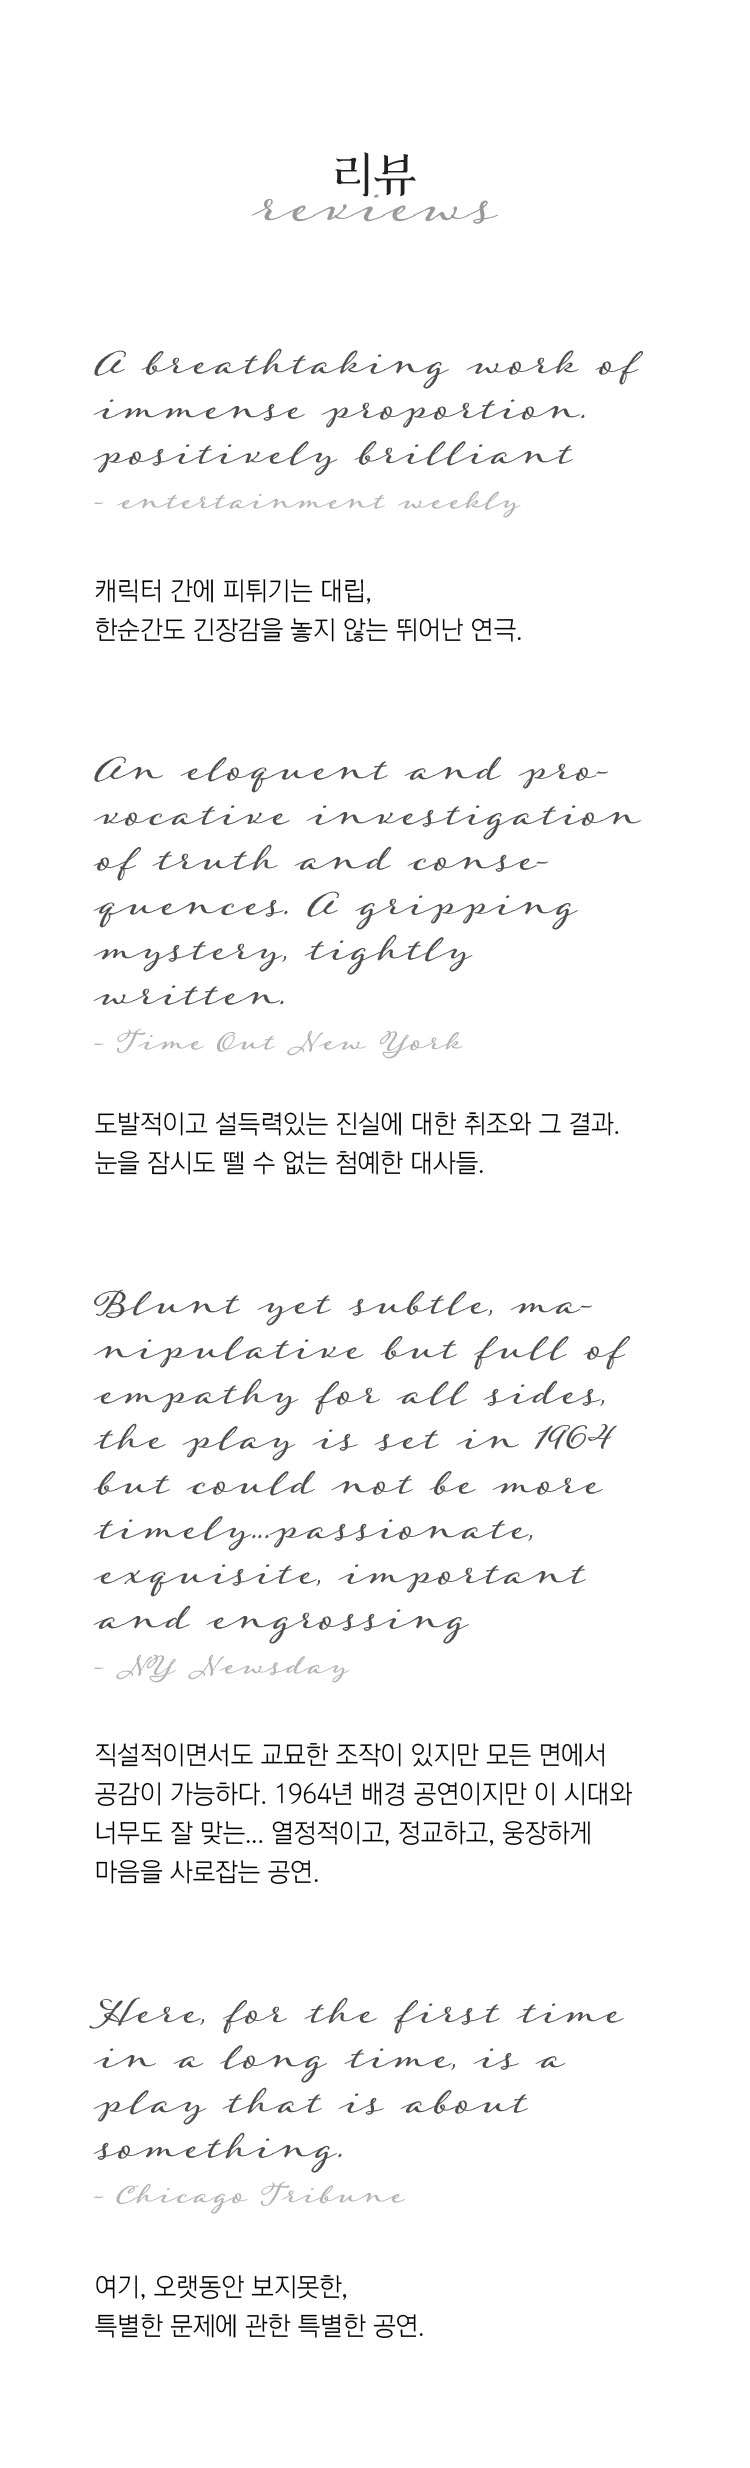 리뷰
reviews
A breathtaking work of
immense proportion.
positively brilliant
- entertainment weekly
캐릭터 간에 피튀기는 대립,
한순간도 긴장감을 놓지 않는 뛰어난 연극.
An eloquent and pro-
vocative investigation
of truth and conse-
quences. A gripping
mystery, tightly
written.
- Time Out New York
도발적이고 설득력있는 진실에 대한 취조와 그 결과.
눈을 잠시도 뗄 수 없는 첨예한 대사들.
Blunt yet subtle, ma-
nipulative but full of
empathy for all sides,
the play is set in 1964
but could not be more
timely...passionate,
exquisite, important
and engrossing
- NY Newsday
직설적이면서도 교묘한 조작이 있지만 모든 면에서
공감이 가능하다. 1964년 배경 공연이지만 이 시대와
너무도 잘 맞는... 열정적이고, 정교하고, 웅장하게
마음을 사로잡는 공연.
Here, for the first time
in a long time, is a
play that is about
something.
- Chicago Tribune
여기, 오랫동안 보지못한,
특별한 문제에 관한 특별한 공연.